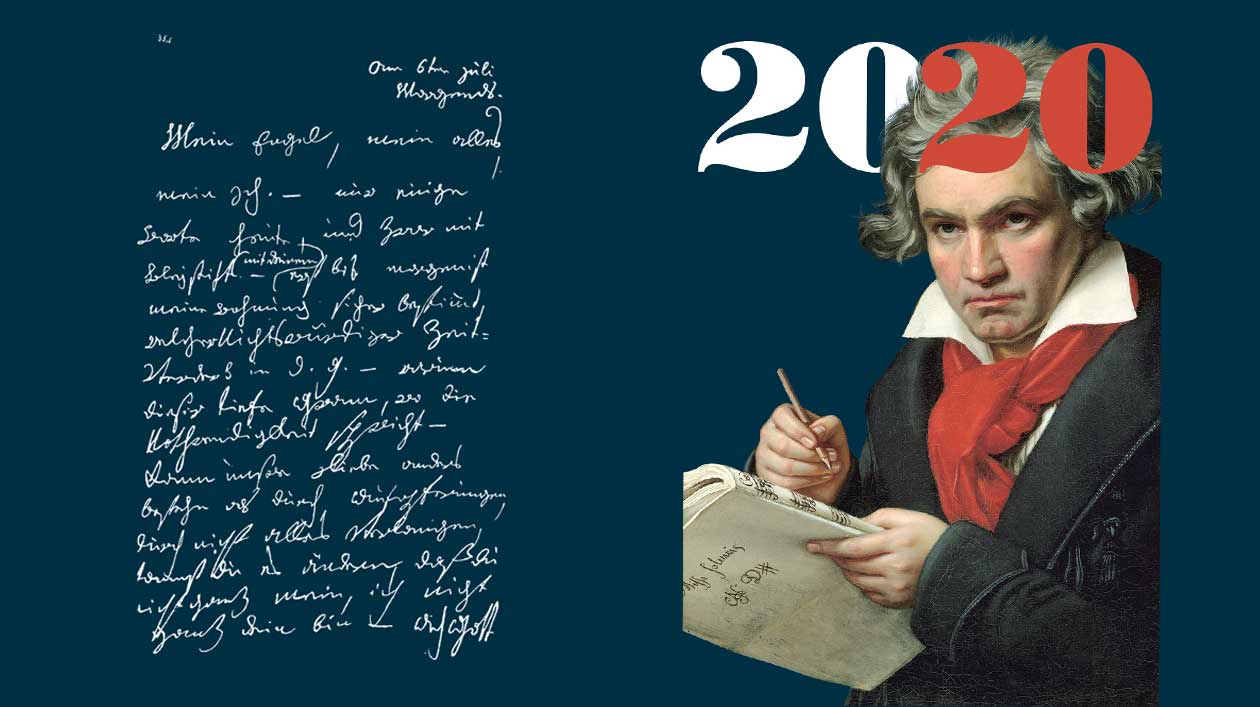 am 6ten juli
Morgends.
Mein Engel, mein alles
mein Ich. — nur einige
Worte heute, und zwar mit
Bleystift — (mit deinem) erst bis morgen ist
meine Wohnung sicher bestimt,
welcher Nichtswürdiger Zeit=
Verderb in d. g. — warum
dieser tiefe Gram, wo die
Nothwendigkeit spricht —
Kann unsre Liebe anders
bestehn als durch Aufopferungen,
durch nicht alles verlangen,
kannst du es ändern, daß du
nicht ganz mein, ich nicht
ganz dein bin — Ach Gott
2020
Missa solemnis
D#